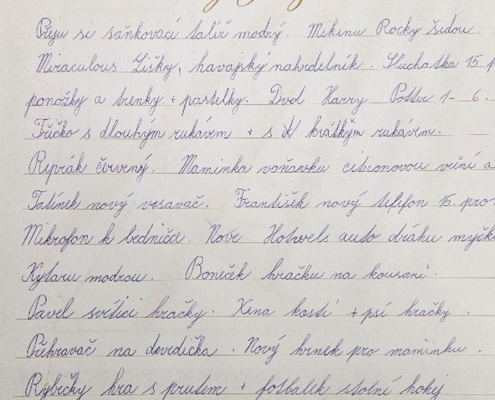 Přeju si saňkovací talíř modrý. Mikinu Rocky šedou.
Miraculous Lišky, havajský nahrdelník. Sluchatka 15 p
ponožky a trenky + pastelky. Dvd Harry Potter 1 - 6.
Tričko s dlouhým rukávem + s krátkým rukávem.
Reprák červený. Maminka voňavku citronovou vůni a
Tatínek nový vysavač. František nový telefon 15. pro
Mikrofon k bedničce. Nove Hotwels auto dráku myčk
Kytaru modrou. Boneček hračku na kousaní.
Pavel svítící hračky. Xena kosti + psí hračky.
Přehravač na devidička. Nový hrnek pro maminku.
Rybičky hra s prutem + fotbalek stolní hokej